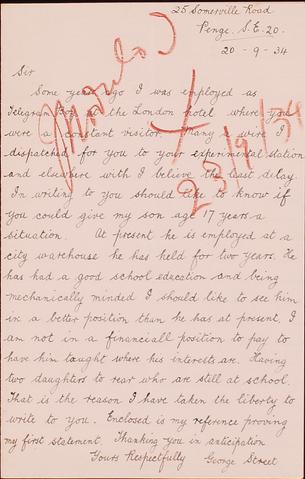 25 Somerville Road
Penge. S.E. 20.
20 - 9 - 34
Sir
Some years ago I was employed as
Telegram Boy at the London hotel where you
were a constant visitor. Many a wire I
dispatched for you to your experimental station
and elsewhere with I believe the least delay.
In writing to you should like to know if
you could give my son age 17 years a
situation. At present he is employed at a
city warehouse he has held for two years. He
has had a good school education and being
mechanically minded I should like to see him
in a better position than he has at present. I
am not in a financiall position to pay to
have him taught where his interests are. Having
two daughters to rear who are still at school.
That is the reason I have taken the liberty to
write to you. Enclosed is my reference proving
my first statement. Thanking you in anticipation
Yours Respectfully George Street
23/9/34